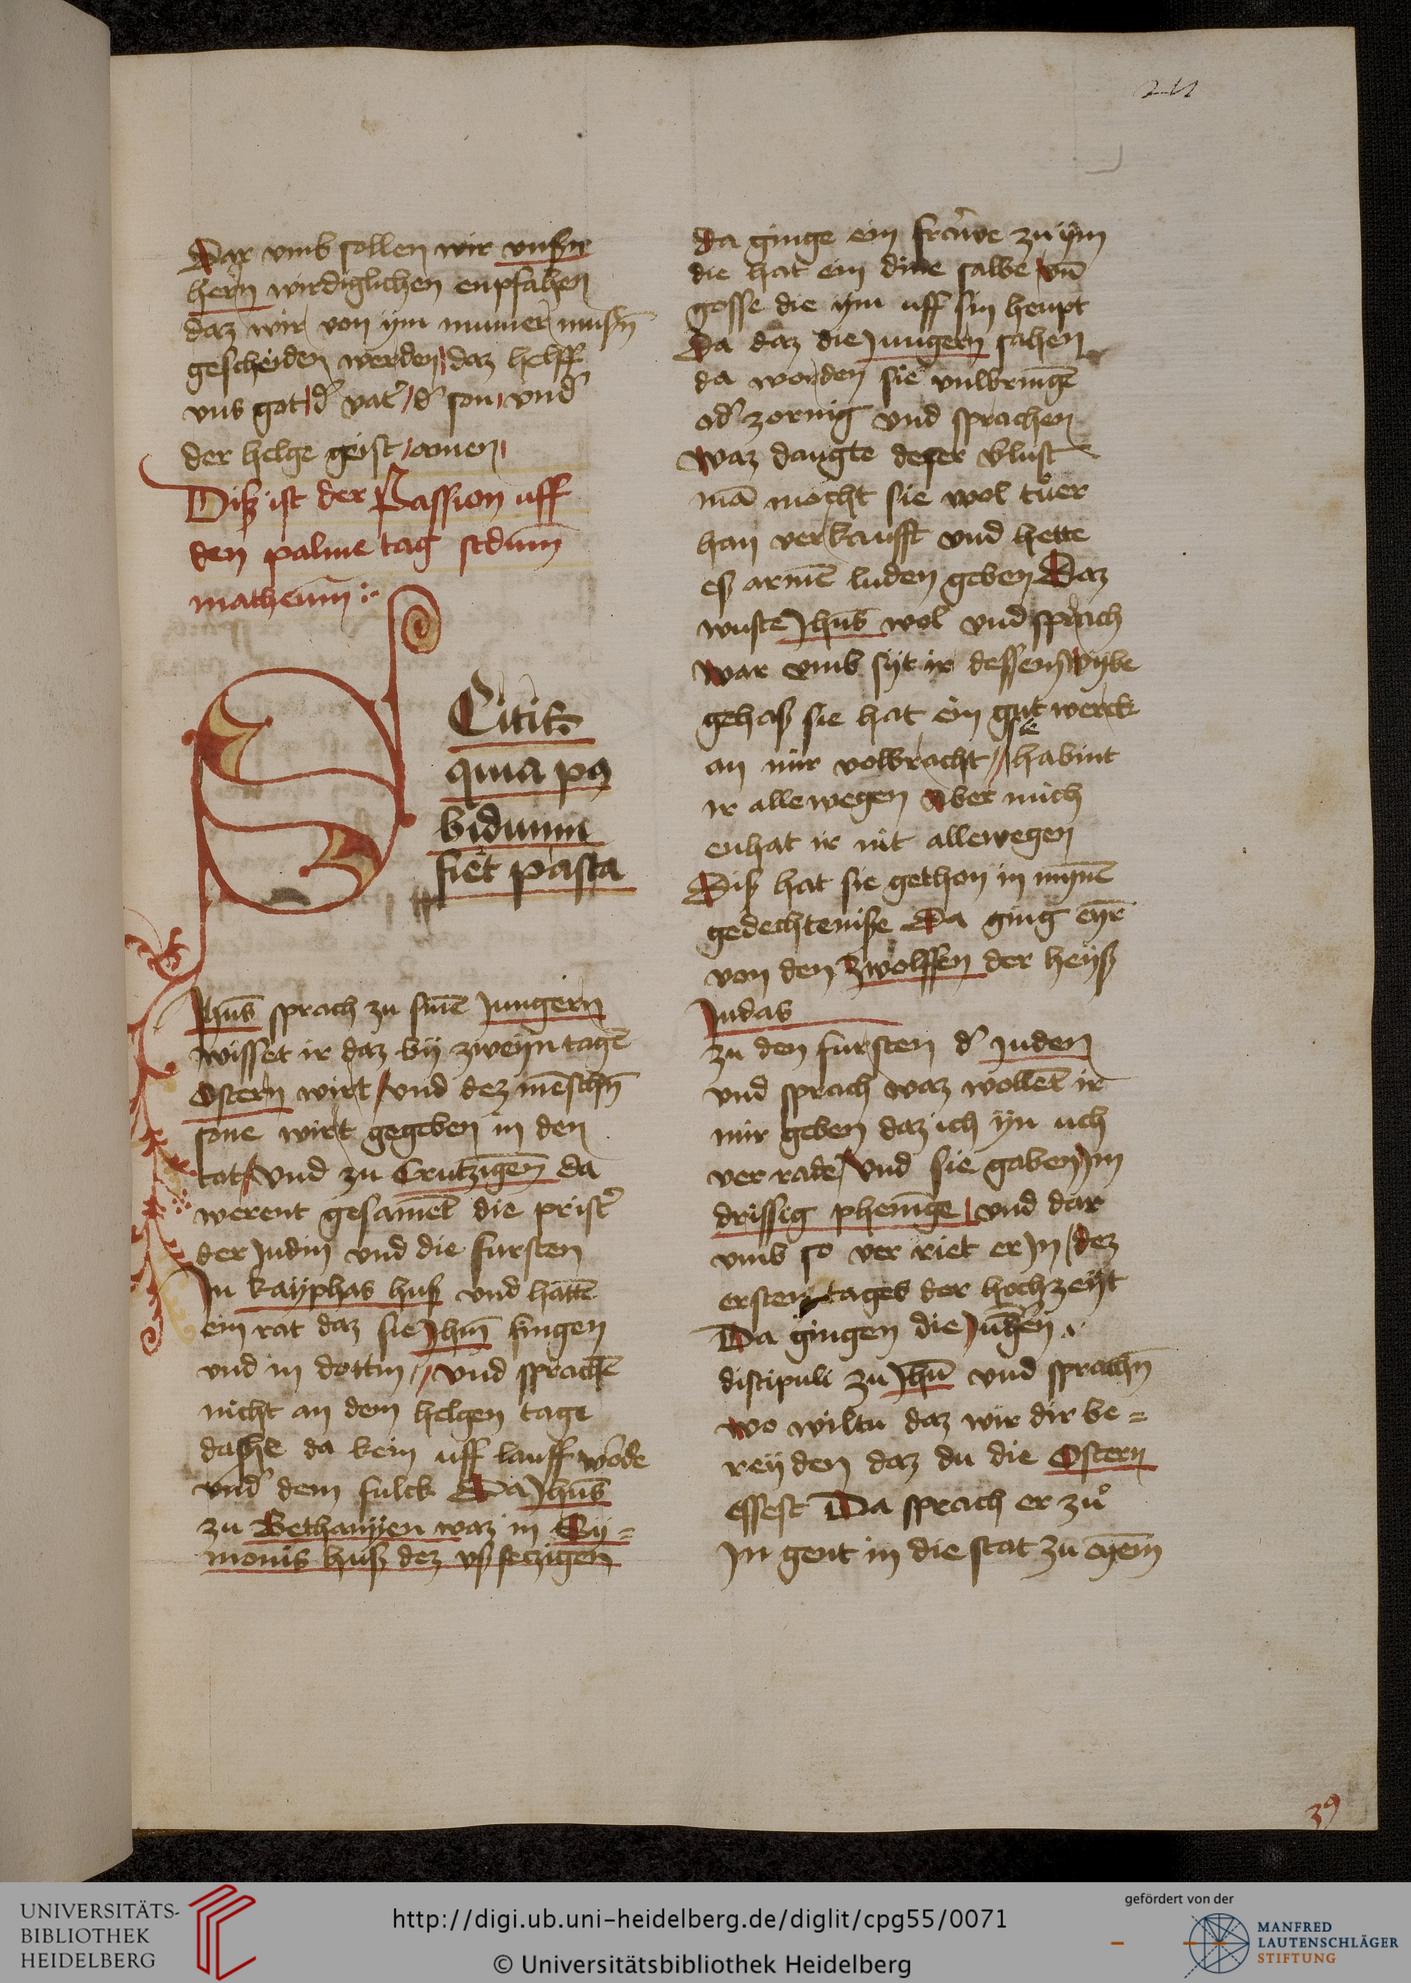 Dar vmb sollen wir vnßn
hern wirdiglichen enpfahen
daz wir von ym nummer mußn
gescheiden werden daz helff
vns got d' vat' d' son vnd
der helge geist amen
Diß ist der Passion uff
den palme tag scdum
matheum
Scitis
quia pq
biduum
fiet pasca
Jhus sprach zu sine Jungern
wisset ir daz by zweyn tage
Ostern wirt vnd dez menschn
sone wirt gegeben in den
tat vnd zu Crutzigen da
werent gesament die prist'
der Judin vnd die fursten
In kayphas huß vnd hatte
ein rat daz sie Jhm fingen
vnd in dottin vnd sprache
nicht an dem helgen tage
da kein uff lauff worde
vnd' dem fulck Da Jhus
zu Bethanyen waz in Sy=
monis huß dez vß setzigen
da ginge ein frauwe zu ym
die hat ein dine salbe vn
gosse die ym uff sin heupt
Da daz die Jungern sahen
da worden sie vnwringe
od' zornig vnd sprachen
waz daugte deser vlust
ma mocht sie wol tuer
han verkaufft vnd hette
eß arme luden geben Daz
wuste Jhus wol vnd sprach
war vmb syt ir dessem wybe
gehaß sie hat ein gut werck
an mir volbracht sie habint
ir allewegen Aber mich
enhat ir nit allewegen
Diß hat sie gethon in myne
gedechteniße Da ging eyr
von den zwolffen der heyß
Judas
zu den fursten d' Juden
vnd sprach waz wollet ir
mir geben daz ich yn uch
ver rade vnd sie gaben Jm
drissig pheninge vnd dar
vmb so ver riet er Jn dez
ersten tages der hochzeyt
Da gingen die Jungen
discipuli zu Jhu vnd sprachn
wo wiltu daz wir dir be=
reyden daz du die Ostern
essest Da sprach er zu
Jn gent in die stat zu eyem
39
UNIVERSITÄTS-
BIBLIOTHEK
HEIDELBERG
http://digi.ub.uni-heidelberg.de/diglit/cpg55/0071
© Universitätsbibliothek Heidelberg
gefördert von der
MANFRED
LAUTENSCHLÄGER
STIFTUNG